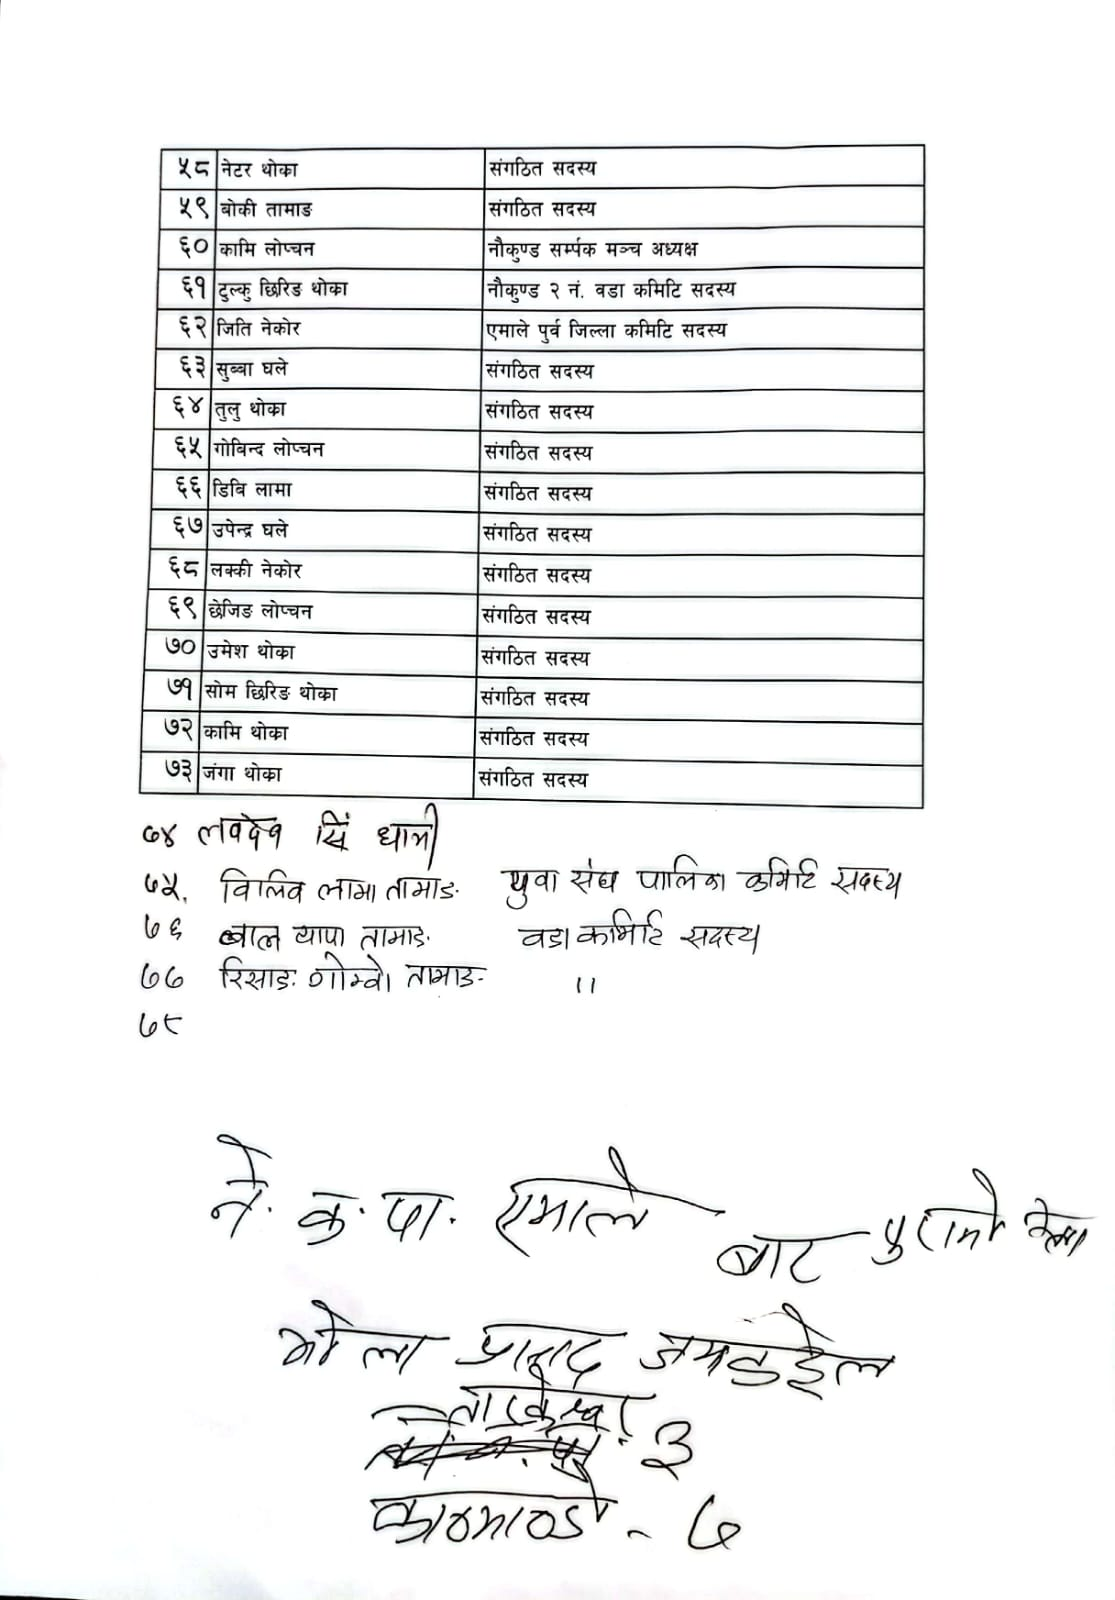 ५८ नेटर थोका संगठित सदस्य
५९ बोकी तामाङ संगठित सदस्य
६० कामि लोप्चन नौकुण्ड सर्म्पक मञ्च अध्यक्ष
६१ टुल्कु छिरिङ थोका नौकुण्ड २ नं. वडा कमिटि सदस्य
६२ जिति नेकोर एमाले पुर्व जिल्ला कमिटि सदस्य
६३ सुब्बा घले संगठित सदस्य
६४ तुलु थोका संगठित सदस्य
६५ गोबिन्द लोप्चन संगठित सदस्य
६६ डिबि लामा संगठित सदस्य
६७ उपेन्द्र घले संगठित सदस्य
६८ लक्की नेकोर संगठित सदस्य
६९ छेजिङ लोप्चन संगठित सदस्य
७० उमेश थोका संगठित सदस्य
७१ सोम छिरिङ थोका संगठित सदस्य
७२ कामि थोका संगठित सदस्य
७३ जंगा थोका संगठित सदस्य
७४ लवदेव सिं धामी
७५. विलिव लामा तामाङ युवा संघ पालिका कमिटि सदस्य
७६ बाल थापा तामाङ वडा कमिटि सदस्य
७७ रिसाङ गोम्वो तामाङ ।।
७८
ने. क. पा. एमाले बाट पुरानो
भोला प्रसाद जमडडेल
तारकेश्वर ३
काठमाडौ - ७